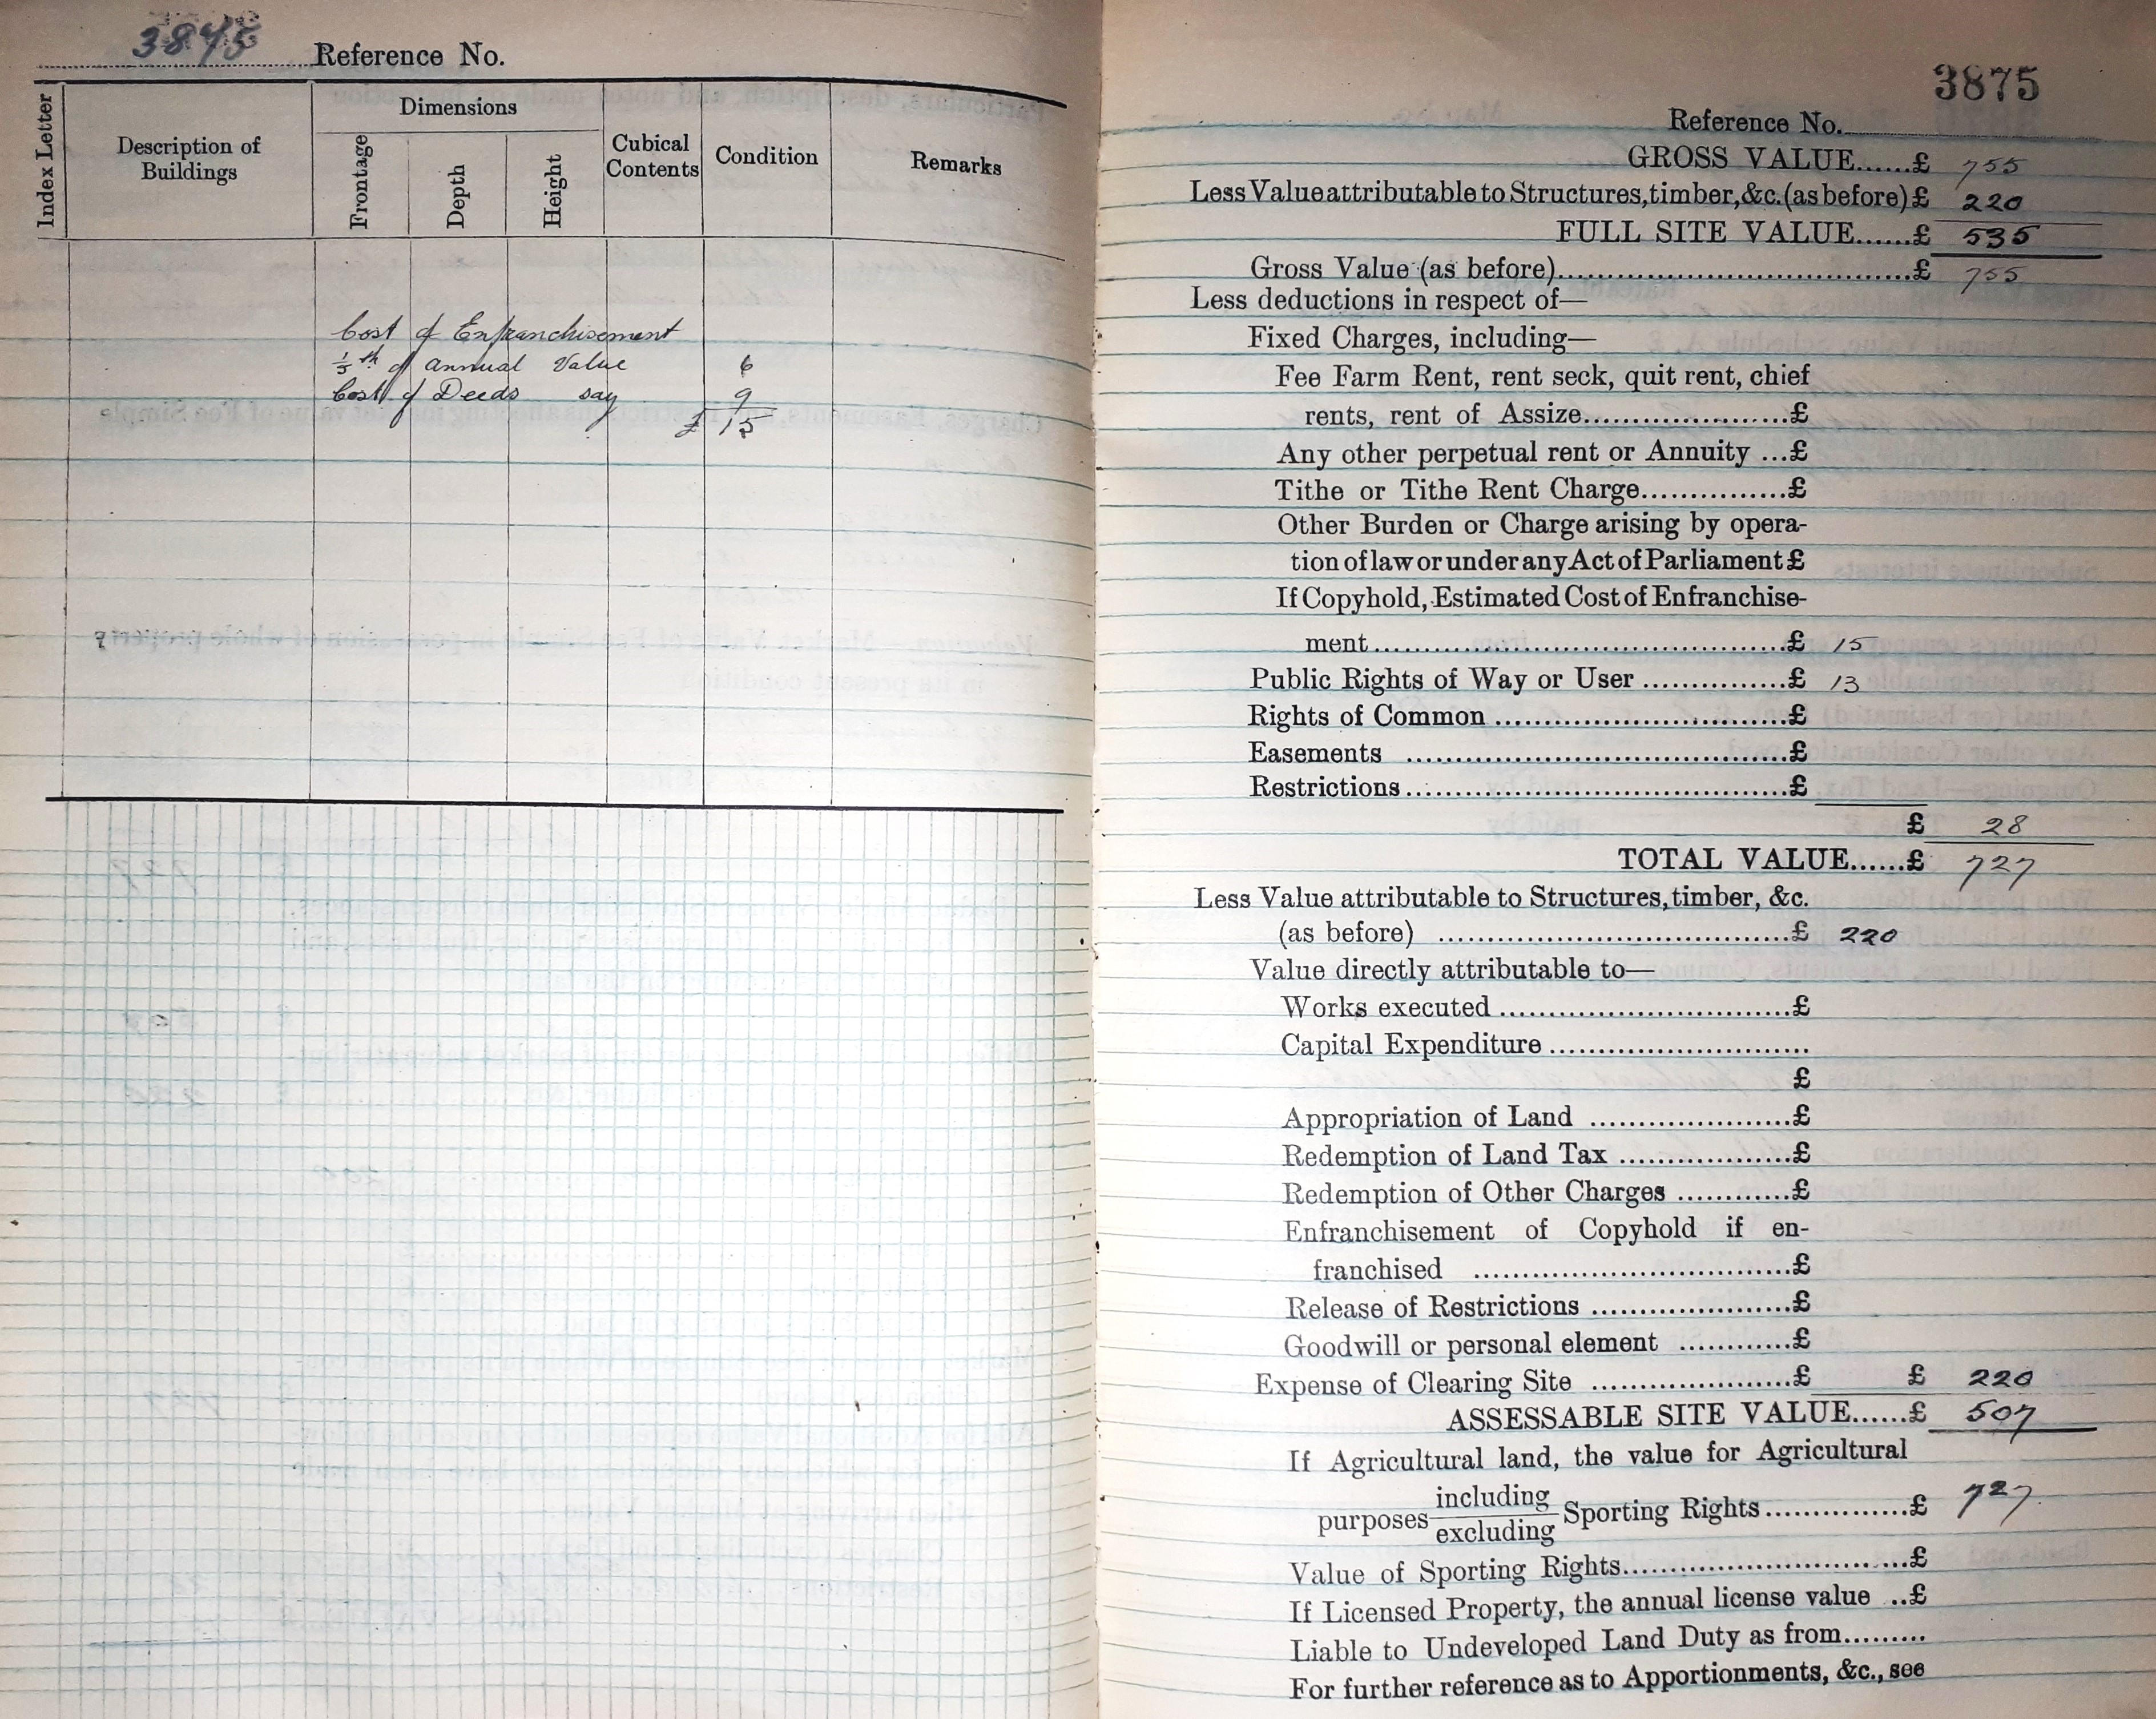 3845 Reference No.
Index Letter
Description of Buildings
Dimensions
Frontage
Depth
Height
Cubical Contents
Condition
Remarks
Cost of Enfranchisement
⅓th of annual Value 6
Cost of Deeds say 9
£ 15
3875
Reference No.
GROSS VALUE......£ 755
Less Value attributable to Structures, timber, &c. (as before) £ 220
FULL SITE VALUE......£ 535
Gross Value (as before)..........£ 755
Less deductions in respect of—
Fixed Charges, including—
Fee Farm Rent, rent seck, quit rent, chief
rents, rent of Assize..........£
Any other perpetual rent or Annuity ...£
Tithe or Tithe Rent Charge..........£
Other Burden or Charge arising by opera-
tion of law or under any Act of Parliament £
If Copyhold, Estimated Cost of Enfranchise-
ment..........£ 15
Public Rights of Way or User ..........£ 13
Rights of Common ..........£
Easements ..........£
Restrictions..........£
£ 28
TOTAL VALUE......£ 727
Less Value attributable to Structures, timber, &c.
(as before) ..........£ 220
Value directly attributable to—
Works executed ..........£
Capital Expenditure ..........
£
Appropriation of Land ..........£
Redemption of Land Tax ..........£
Redemption of Other Charges ..........£
Enfranchisement of Copyhold if en-
franchised ..........£
Release of Restrictions ..........£
Goodwill or personal element ..........£
Expense of Clearing Site ..........£ £ 220
ASSESSABLE SITE VALUE......£ 507
If Agricultural land, the value for Agricultural
purposes including/excluding Sporting Rights..........£ 727
Value of Sporting Rights..........£
If Licensed Property, the annual license value ..£
Liable to Undeveloped Land Duty as from.........
For further reference as to Apportionments, &c., see